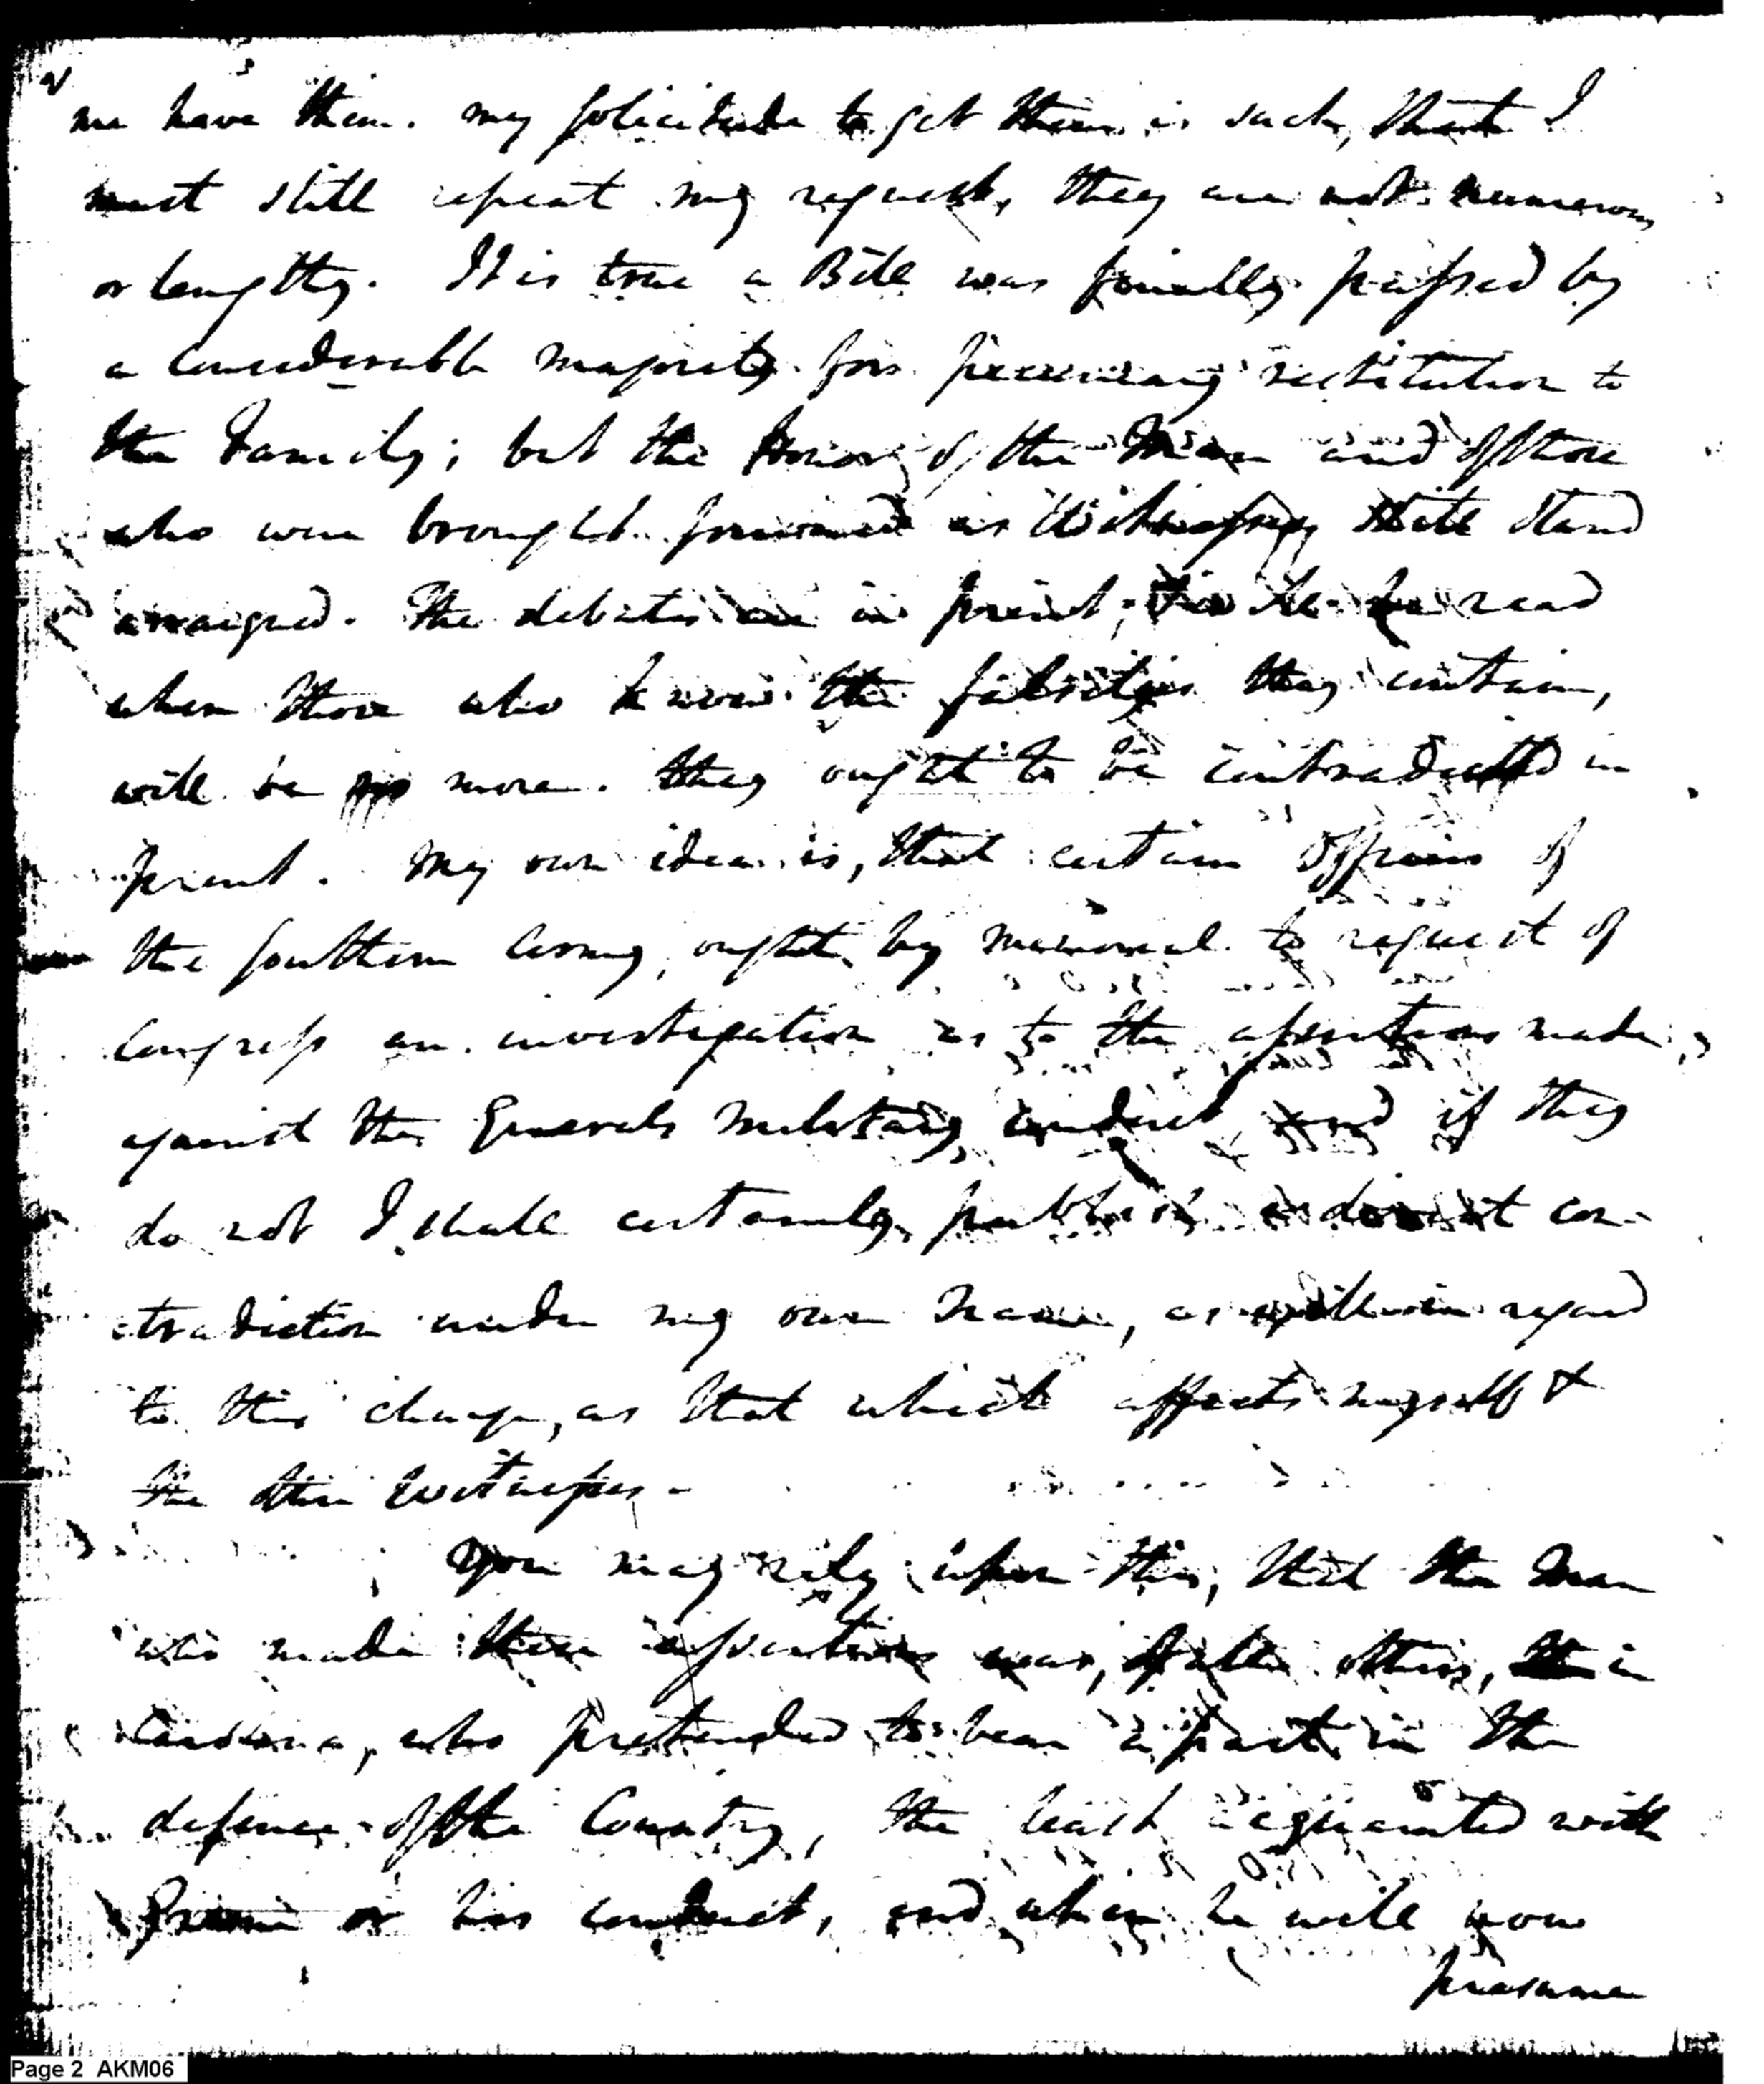 me have them. my solicitude to get them is such, that I
must still repeat my request, they are not numerous
or lengthy. It is true a Bill was finally passed by
a considerable majority for pecuniary restitution to
the Family; but the honor of the Man and of those
who were brought forward as Witnesses, still stand
arraigned. The debates are in print, to be read
when those who know the falsities they contain,
will be no more. they ought to be contradicted in
print. My own idea is, that certain Officers of
the southern Army, ought by memorial to request of
Congress an investigation as to the assertions made
against the Generals military conduct and if they
do not I shall certainly publish a direct con-
tradiction under my own Name, as well in regard
to this charge, as that which affects myself &
the other Witnesses -
You may rely upon this, that the Man
who made these assertions was, of all others, in
Carolina, who pretended to bear a part in the
defence of the Country, the least acquainted with
Greene or his conduct, and when he will now
presume
Page 2 AKM06